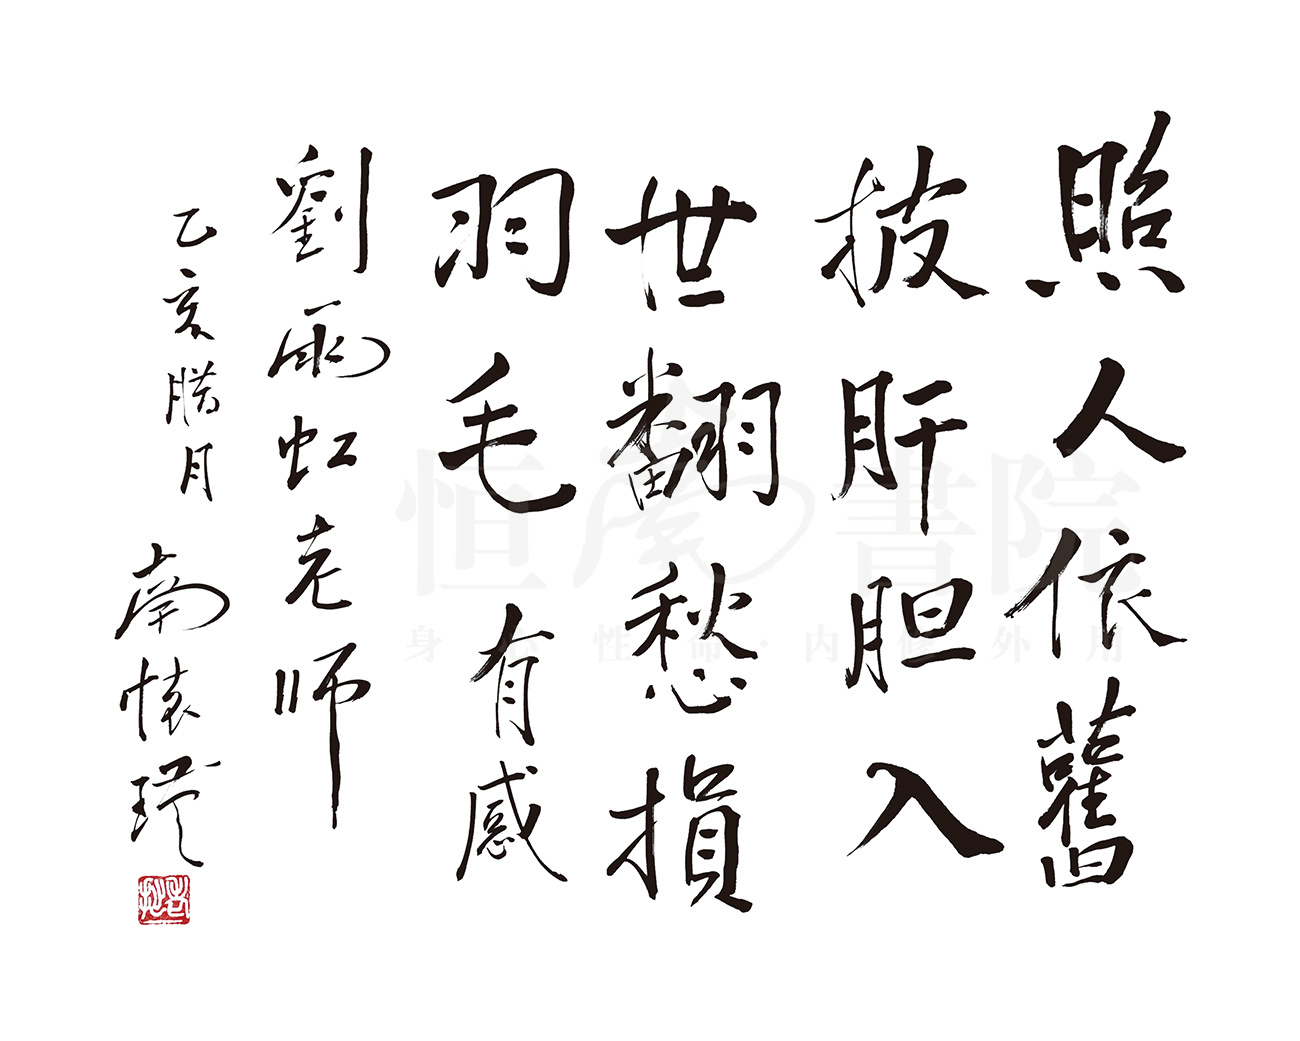 照人依舊
披肝胆入
世翻愁損
羽毛 有感
劉雨虹老师
乙亥腊月 南懷瑾
恒南書院
身心性命·内修外用